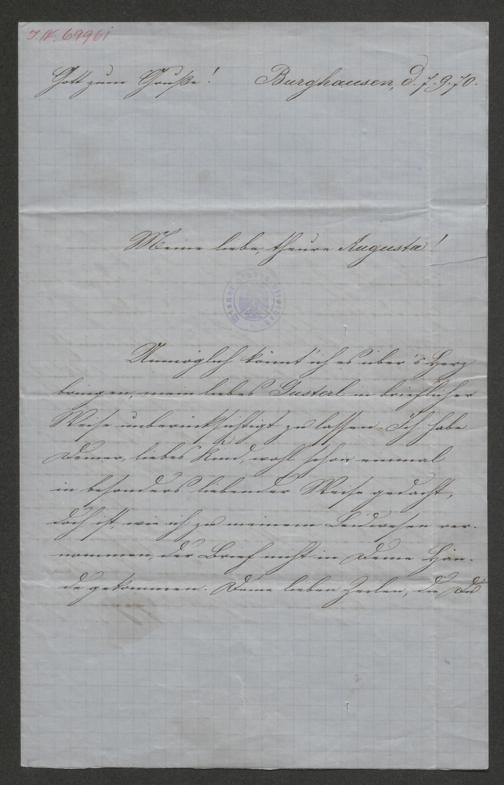 I. N. 69961
Gott zum Gruße! Burghausen, d. 7.9.70.
Meine liebe, theure Augusta!
Unmöglich könnt' ich es über's Herz
bringen, mein liebes Gusterl in brieflicher
Weise unberücksichtigt zu lassen. Ich habe
Deiner, liebes Kind, wohl schon einmal
in besonders liebender Weise gedacht,
doch ist, wie ich zu meinem Leidwesen ver-
nommen, der Brief nicht in Deine Hän-
de gekommen. Deine lieben Zeilen, die Du